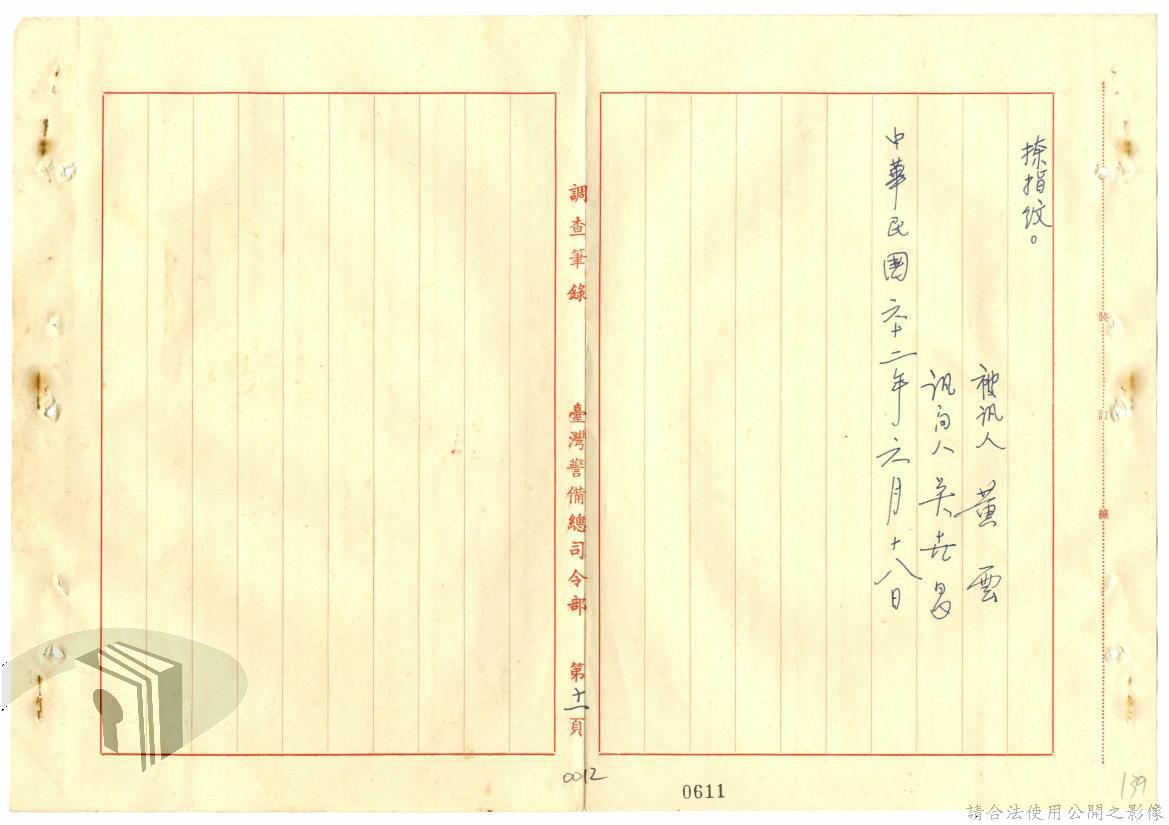 捺指紋。
被訊人 黃雲
訊問人 吳
中華民國六十二年六月十八日
裝訂線
調查筆錄 臺灣警備總司令部 第十一頁
0012
0611
139
請合法使用公開之影像